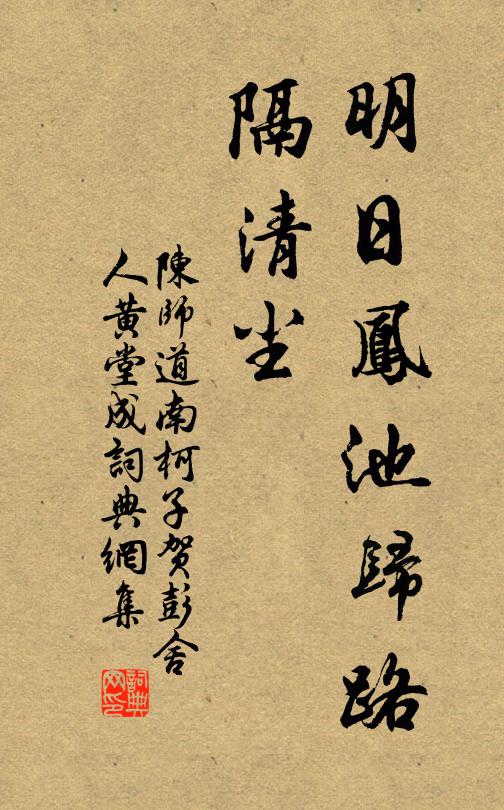 明日鳳池歸路
隔清尘
陳師道南柯子贺彭舍
人黄堂成詞典網集
詞典
网印